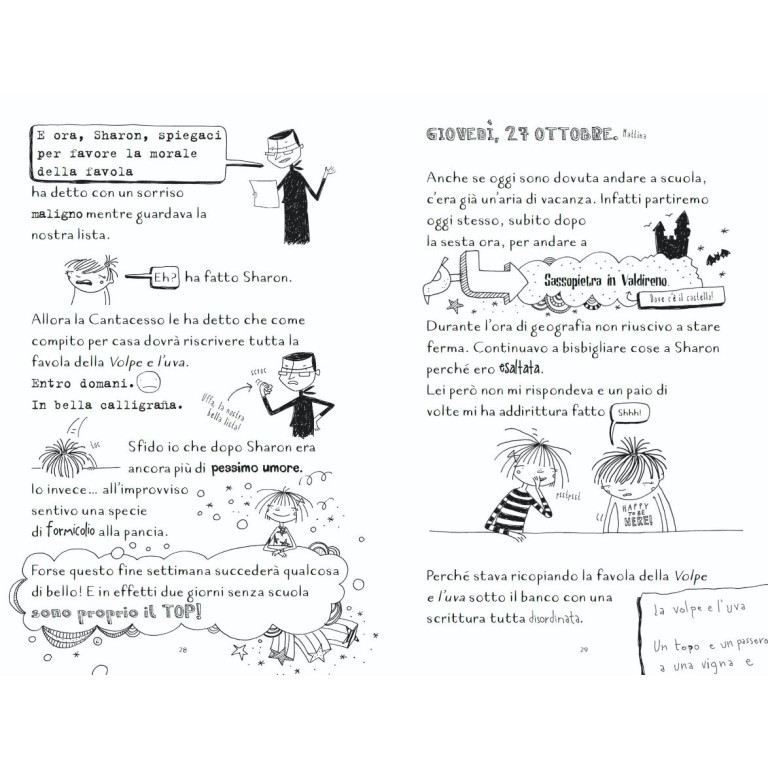 E ora, Sharon, spiegaci
per favore la morale
della favola
ha detto con un sorriso
maligno mentre guardava la
nostra lista.
Eh?
ha fatto Sharon.
Allora la Cantacesso le ha detto che come
compito per casa dovrà riscrivere tutta la
favola della Volpe e l'uva.
Entro domani.
In bella calligrafia.
Uffa, la nostra
bella lista!
Sfido io che dopo Sharon era
ancora più di pessimo umore.
Io invece... all'improvviso
sentivo una specie
di formicolio alla pancia.
Forse questo fine settimana succederà qualcosa
di bello! E in effetti due giorni senza scuola
sono proprio il TOP!
28
GIOVEDÌ, 27 OTTOBRE. Mattina
Anche se oggi sono dovuta andare a scuola,
c'era già un'aria di vacanza. Infatti partiremo
oggi stesso, subito dopo
la sesta ora, per andare a
Sassopietra in Valdireno.
Dove c'è il castello!
Durante l'ora di geografia non riuscivo a stare
ferma. Continuavo a bisbigliare cose a Sharon
perché ero esaltata.
Lei però non mi rispondeva e un paio di
volte mi ha addirittura fatto
Shhh!
HAPPY
TO BE
HERE!
Perché stava ricopiando la favola della Volpe
e l'uva sotto il banco con una
scrittura tutta disordinata.
La volpe e l'uva
Un topo e un passero
a una vigna e
29